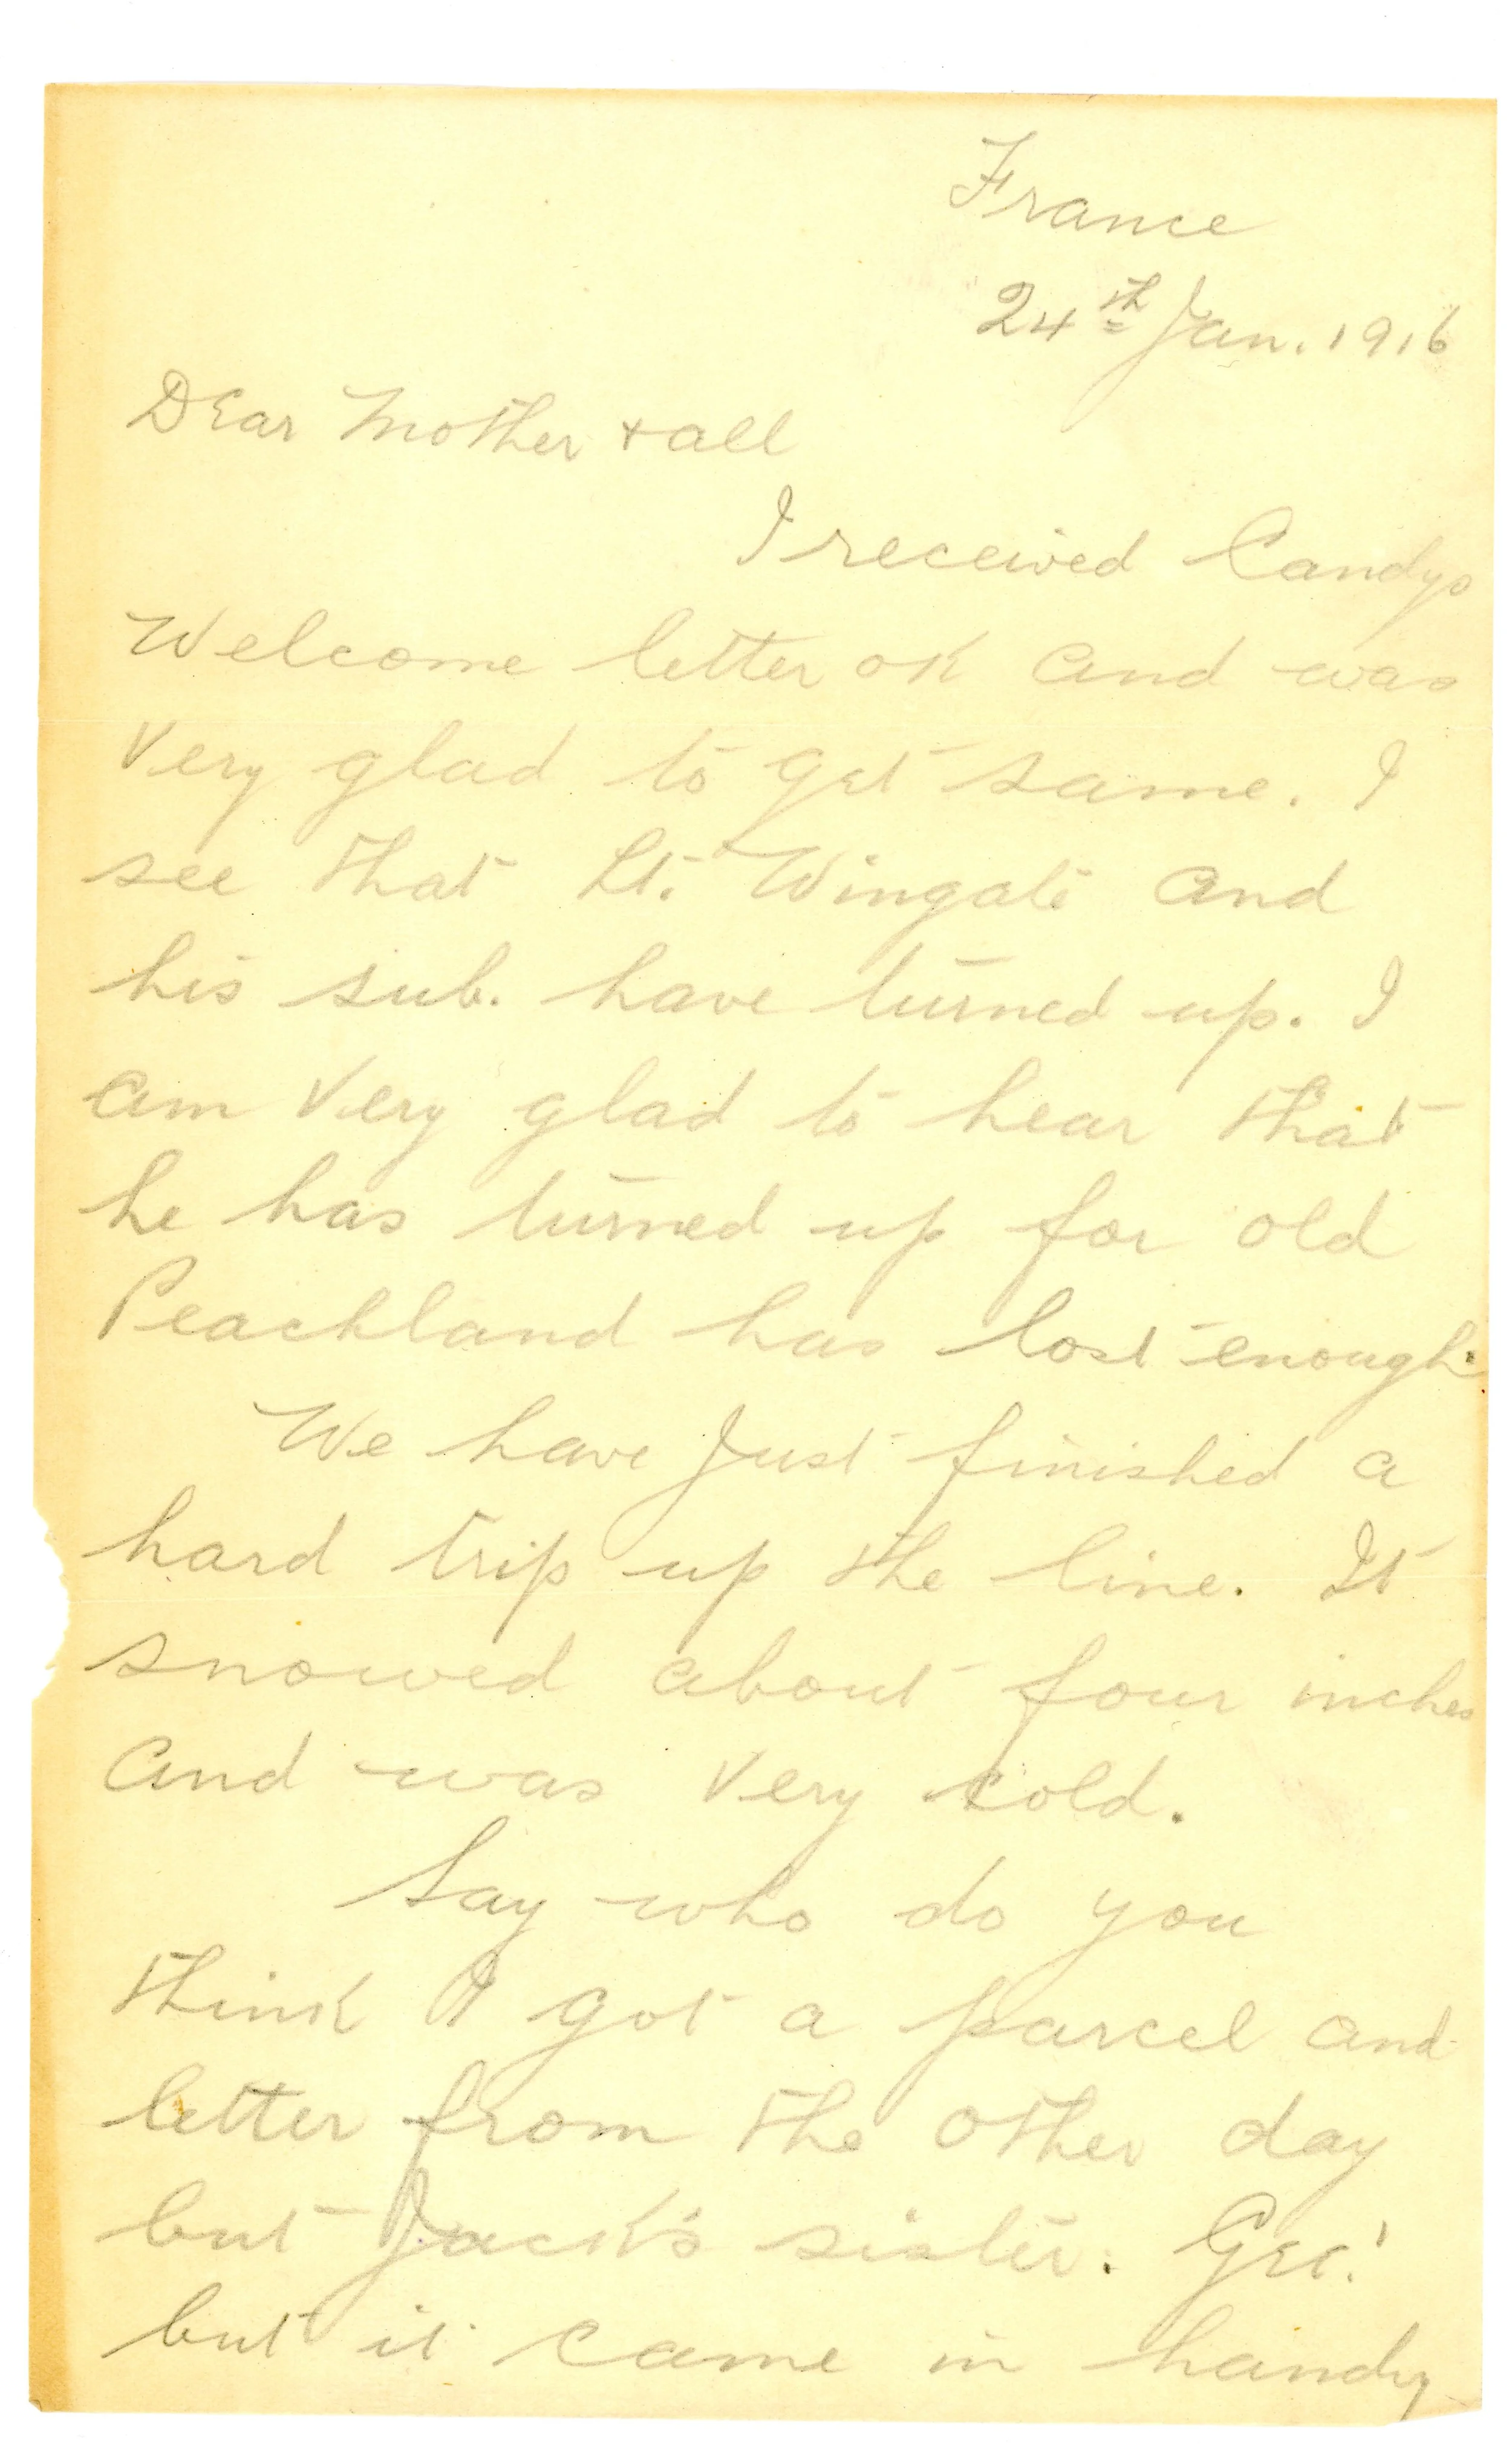 France
24th Jan. 1916
Dear Mother + all
I received Candys
Welcome letter OK and was
very glad to get same. I
see that Lt. Wingate and
his sub. have turned up. I
am very glad to hear that
he has turned up for old
Peachland has lost enough.
We have just finished a
hard trip up the line. It
snowed about four inches
and was very cold.
Say who do you
think I got a parcel and
letter from the other day
but Jack's sister. Gee!
but it came in handy